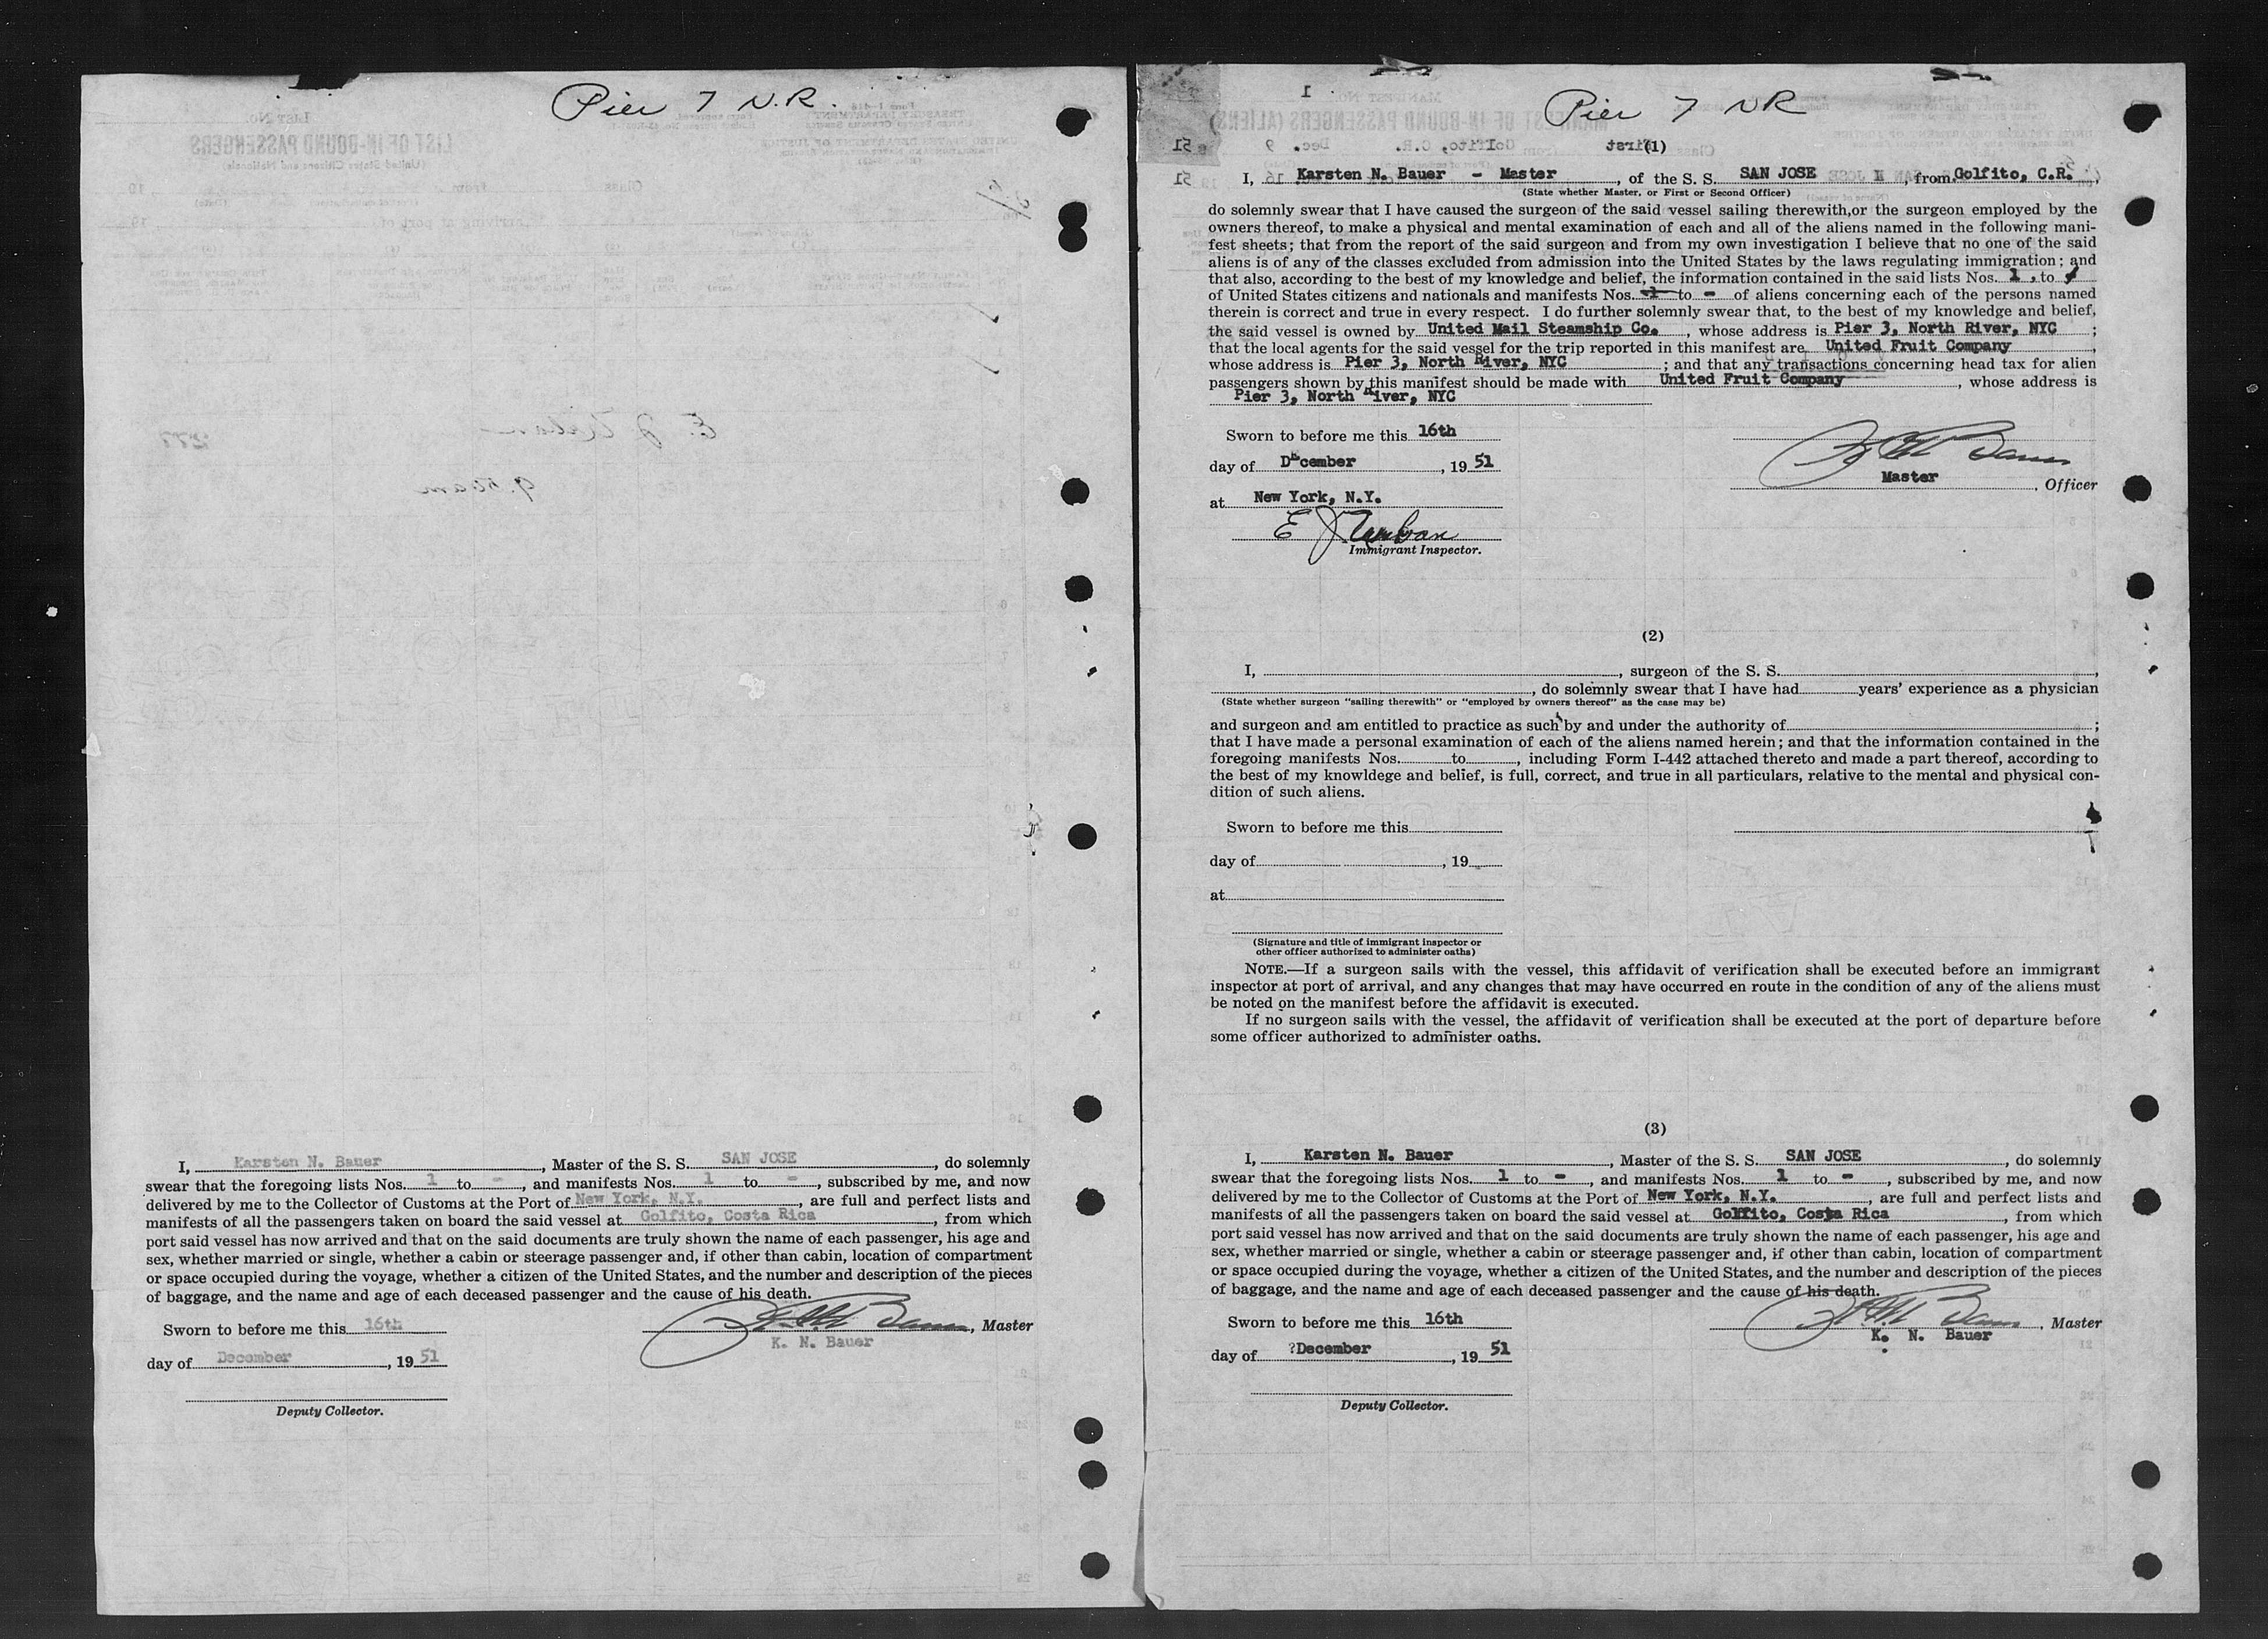 Pier 7 N.R.
I, Karsten N. Bauer, Master of the S. S. SAN JOSE, do solemnly
swear that the foregoing lists Nos. 1 to -, and manifests Nos. 1 to -, subscribed by me, and now
delivered by me to the Collector of Customs at the Port of New York, N.Y., are full and perfect lists and
manifests of all the passengers taken on board the said vessel at Golfito, Costa Rica, from which
port said vessel has now arrived and that on the said documents are truly shown the name of each passenger, his age and
sex, whether married or single, whether a cabin or steerage passenger and, if other than cabin, location of compartment
or space occupied during the voyage, whether a citizen of the United States, and the number and description of the pieces
of baggage, and the name and age of each deceased passenger and the cause of his death.
Sworn to before me this 16th
, Master
K. N. Bauer
day of December, 19 51
Deputy Collector.
Pier 7 NR
(1)
I, Karsten N. Bauer - Master, of the S. S. SAN JOSE, from Golfito, C.R.,
(State whether Master, or First or Second Officer)
do solemnly swear that I have caused the surgeon of the said vessel sailing therewith, or the surgeon employed by the
owners thereof, to make a physical and mental examination of each and all of the aliens named in the following mani-
fest sheets; that from the report of the said surgeon and from my own investigation I believe that no one of the said
aliens is of any of the classes excluded from admission into the United States by the laws regulating immigration; and
that also, according to the best of my knowledge and belief, the information contained in the said lists Nos. 1, to
of United States citizens and nationals and manifests Nos. 1 to - of aliens concerning each of the persons named
therein is correct and true in every respect. I do further solemnly swear that, to the best of my knowledge and belief,
the said vessel is owned by United Mail Steamship Co., whose address is Pier 3, North River, NYC;
that the local agents for the said vessel for the trip reported in this manifest are United Fruit Company,
whose address is Pier 3, North River, NYC; and that any transactions concerning head tax for alien
passengers shown by this manifest should be made with United Fruit Company, whose address is
Pier 3, North River, NYC
Sworn to before me this 16th
day of December, 19 51
Master, Officer
at New York, N.Y.
E J Urban
Immigrant Inspector.
(2)
I, , surgeon of the S. S. ,
, do solemnly swear that I have had years' experience as a physician
(State whether surgeon "sailing therewith" or "employed by owners thereof" as the case may be)
and surgeon and am entitled to practice as such by and under the authority of ;
that I have made a personal examination of each of the aliens named herein; and that the information contained in the
foregoing manifests Nos. to , including Form I-442 attached thereto and made a part thereof, according to
the best of my knowldege and belief, is full, correct, and true in all particulars, relative to the mental and physical con-
dition of such aliens.
Sworn to before me this
day of , 19
at
(Signature and title of immigrant inspector or
other officer authorized to administer oaths)
NOTE.—If a surgeon sails with the vessel, this affidavit of verification shall be executed before an immigrant
inspector at port of arrival, and any changes that may have occurred en route in the condition of any of the aliens must
be noted on the manifest before the affidavit is executed.
If no surgeon sails with the vessel, the affidavit of verification shall be executed at the port of departure before
some officer authorized to administer oaths.
(3)
I, Karsten N. Bauer, Master of the S. S. SAN JOSE, do solemnly
swear that the foregoing lists Nos. 1 to -, and manifests Nos. 1 to -, subscribed by me, and now
delivered by me to the Collector of Customs at the Port of New York, N.Y., are full and perfect lists and
manifests of all the passengers taken on board the said vessel at Golfito, Costa Rica, from which
port said vessel has now arrived and that on the said documents are truly shown the name of each passenger, his age and
sex, whether married or single, whether a cabin or steerage passenger and, if other than cabin, location of compartment
or space occupied during the voyage, whether a citizen of the United States, and the number and description of the pieces
of baggage, and the name and age of each deceased passenger and the cause of his death.
Sworn to before me this 16th
, Master
K. N. Bauer
day of ?December, 19 51
Deputy Collector.